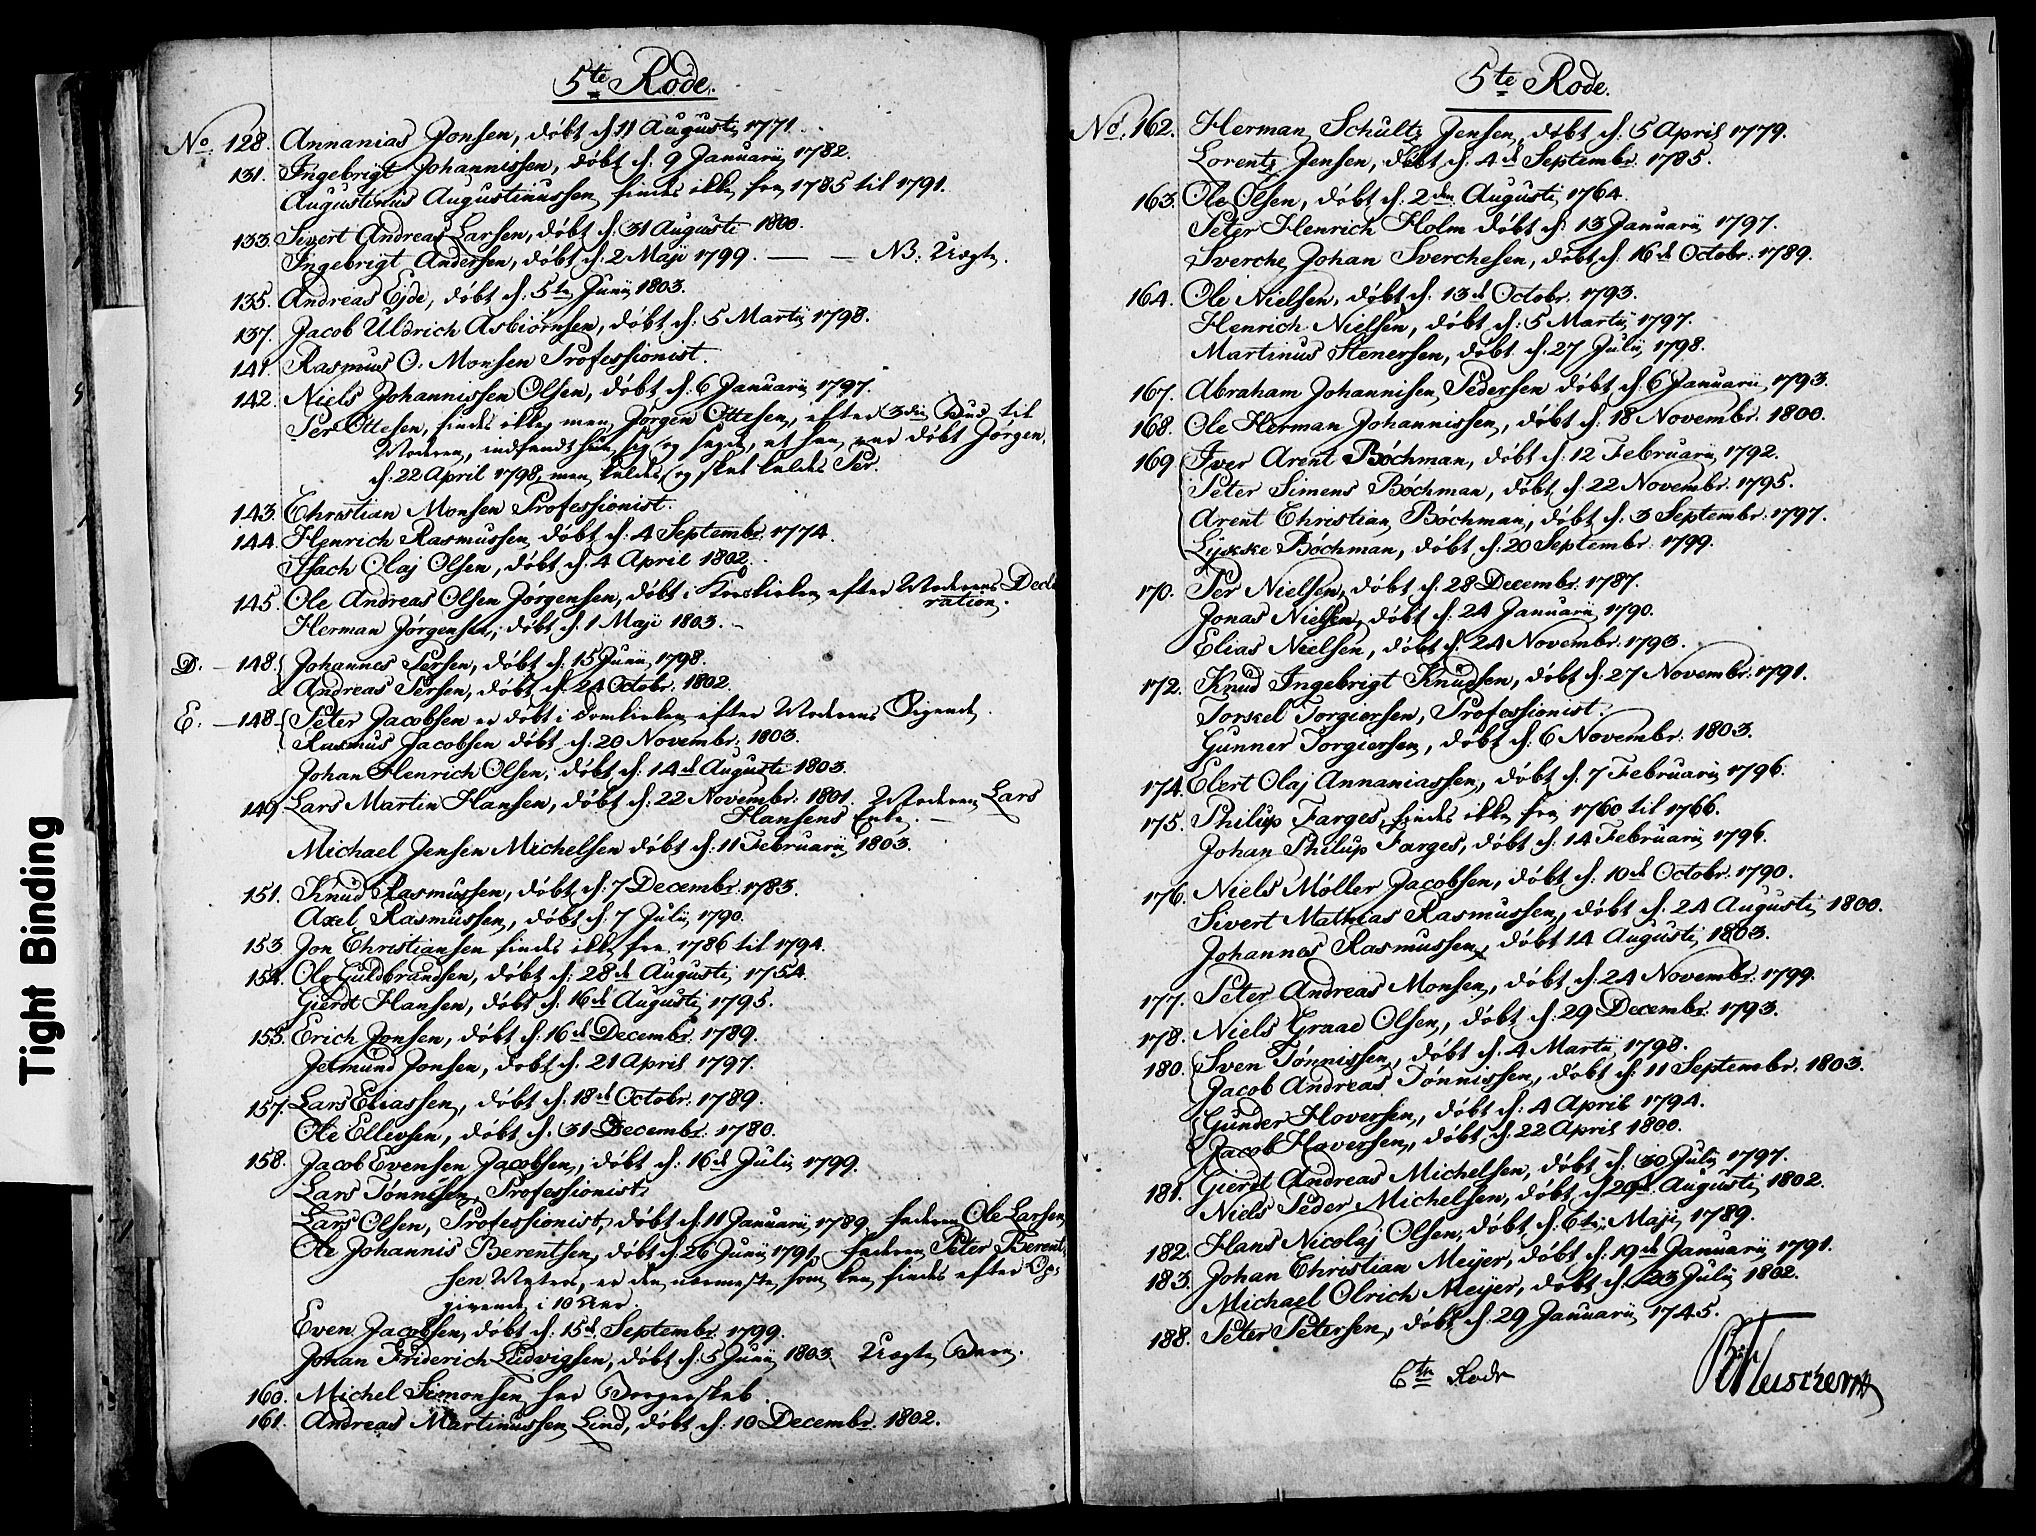 Tight Binding
5te Rode.
No. 128. Annanias Jonsen, döbt d. 11 Augusti 1771.
131. Ingebrigt Johannissen, döbt d: 9 Januarii 1782.
Augustinus Augustinussen findes ikke fra 1785 til 1791.
133. Sivert Andreas Larsen, döbt d: 31 Augusti 1800.
Ingebrigt Andersen, döbt d: 2 Maji 1799. — — NB. Uægte.
135. Andreas Eide, döbt d: 5te Junii 1803.
137. Jacob Uldrich Asbiörnsen, döbt d: 5 Martii 1798.
141 Rasmus O. Monsen Professionist.
142. Niels Johannissen Olsen, döbt d: 6 Januarii 1797.
Per Ottesen, findes ikke, men Jörgen Ottesen, efter 3die Bud til
Moderen, indfandt hun sig og sagde, at han var döbt Jörgen
d: 22 April 1798, men kaldes og skal kaldes Per.
143. Christian Monsen Professionist.
144. Henrich Rasmussen döbt d: 4 Septembr. 1774.
Isach Olaj Olsen, döbt d: 4 April 1802.
145. Ole Andreas Olsen Jörgensen, döbt i Korskirken efter Moderens Decla
ration.
Herman Jörgensen, döbt d. 1 Maji 1803.
D. — 148. Johannes Persen, döbt d: 15 Junii 1798.
Andreas Persen, döbt d: 24 Octobr. 1802.
E. — 148. Peter Jacobsen er döbt i Domkirken efter Moderens Sigende.
Rasmus Jacobsen döbt d: 20 Novembr: 1803.
Johan Henrich Olsen, döbt d: 14de Augusti 1803.
149. Lars Martin Hansen, döbt d: 22 Novembr: 1801. Moderen Lars
Hansens Enke. —
Michael Jensen Michelsen döbt d: 11 Februarii 1803.
151. Knud Rasmussen, döbt d: 7 Decembr. 1783.
Axel Rasmussen, döbt d: 7 Julii 1790.
153 Jon Christiansen findes ikke fra 1786 til 1794.
154. Ole Guldbrandsen, döbt d: 28de Augusti 1754.
Gierdt Hansen, döbt d. 16de Augusti 1795.
155. Erich Jonsen, döbt d: 16de Decembr. 1789.
Jetmund Jonsen, döbt d: 21 April 1797.
157. Lars Eliassen, döbt d: 18de Octobr: 1789.
Ole Ellevsen, döbt d. 31 Decembr. 1780.
158. Jacob Evensen Jacobsen, döbt d: 16de Julii 1799.
Lars Tönnisen, Professionist.
Lars Olsen, Professionist, döbt d: 11 Januarii 1789, Faderen Ole Larsen
Ole Johannis Berentsen, döbt d: 26 Junii 1791, Faderen Peter Berent-
sen, er den nærmeste, som kan findes efter Op-
givende i 10 Aar.
Even Jacobsen, döbt d: 15de Septembr 1799.
Johan Friderich Ludvigsen, döbt d: 5 Junii 1803. Uægte Barn.
160. Michel Simonsen har Borgerskab.
161. Andreas Martinussen Lind, döbt d: 10 Decembr. 1802.
5te Rode.
No. 162. Herman Schultz Jensen, döbt d: 5 April 1779.
Lorentz Jensen, döbt d: 4de Septembr. 1785.
163. Ole Olsen, döbt d: 2den Augusti 1764.
Peter Henrich Holm döbt d: 13 Januarii 1797.
Sverche Johan Sverchesen, döbt d: 16de Octobr: 1789.
164. Ole Nielsen, döbt d: 13de Octobr. 1793.
Henrich Nielsen, döbt d: 5 Martii 1797.
Martinus Stenersen, döbt d. 27 Julii 1798.
167. Abraham Johannisen Pedersen döbt d: 6 Januarii 1793.
168. Ole Herman Johannissen, döbt d: 18 Novembr. 1800.
169. Iver Arent Böchman, döbt d: 12 Februarii 1792.
Peter Simens Böchman, döbt d: 22 Novembr. 1795.
Arent Christian Böchman, döbt d: 3 Septembr: 1797.
Lykke Böchman, döbt d: 20 Septembr 1799.
170. Per Nielsen, döbt d: 28 Decembr: 1787.
Jonas Nielsen, döbt d: 24 Januarii 1790.
Elias Nielsen, döbt d: 24 Novembr. 1793.
172. Knud Ingebrigt Knudsen, döbt d: 27 Novembr: 1791.
Torkel Torgiersen, Professionist.
Gunner Torgiersen, döbt d: 6 Novembr. 1803.
174. Elert Olaj Annaniassen, döbt d: 7 Februarii 1796.
175. Philip Farges, findes ikke fra 1760 til 1766.
Johan Philip Farges, döbt d: 14 Februarii 1796.
176. Niels Möller Jacobsen, döbt d: 10de Octobr. 1790.
Sivert Mathias Rasmussen, döbt d: 24 Augusti 1800.
Johannes Rasmussen, döbt 14 Augusti 1803.
177. Peter Andreas Monsen, döbt d: 24 Novembr. 1799.
178. Niels Graae Olsen, döbt d: 29 Decembr. 1793.
180. Sven Tönnissen, döbt d. 4 Martii 1798.
Jacob Andreas Tönnissen, döbt d: 11 Septembr. 1803.
Gunder Hoversen, döbt d: 4 April 1794.
Jacob Hoversen, döbt d: 22 April 1800.
181. Gierdt Andreas Michelsen, döbt d. 30 Julii 1797.
Niels Peder Michelsen, döbt d 29de Augusti 1802.
182. Hans Nicolaj Olsen, döbt d. 6te Maji 1789.
183. Johan Christian Meyer, döbt d: 19de Januarii 1791.
Michael Olrich Meyer, döbt d. 23 Julii 1802.
188. Peter Petersen, döbt d: 29 Januarii 1745.
6te Rode